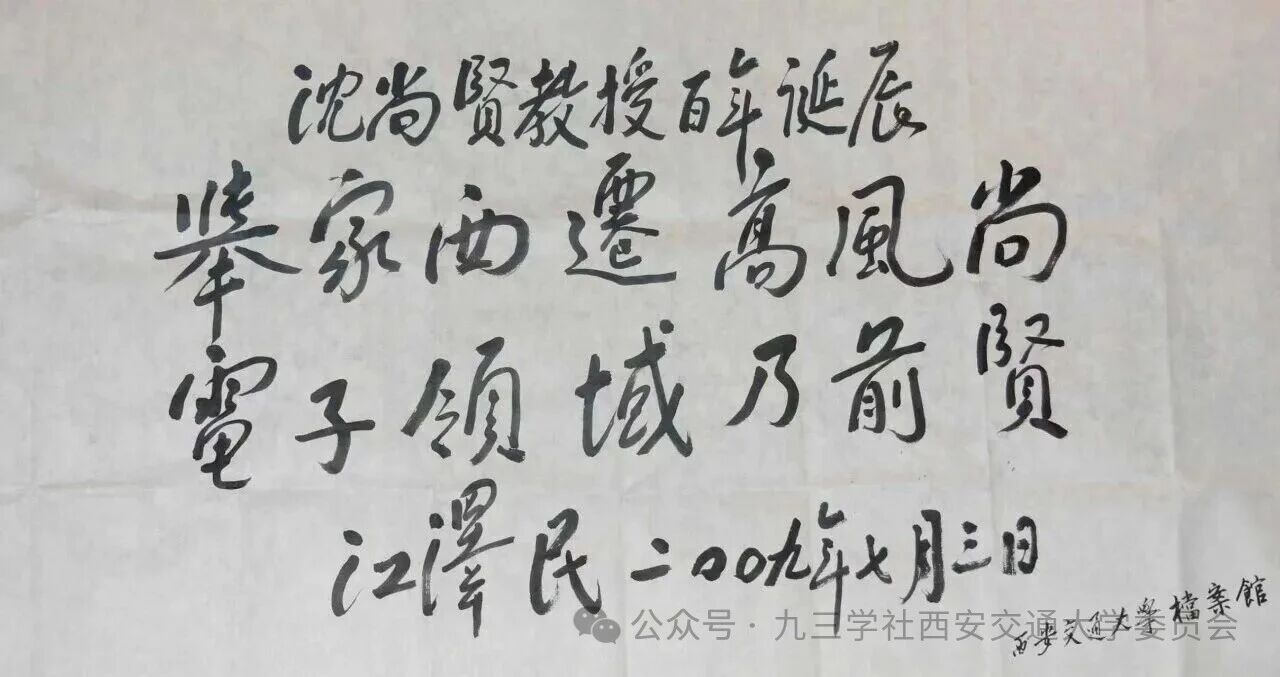 沈尚賢教授百年诞辰
舉家西遷高風尚
電子領域乃前賢
江澤民 二〇〇九年七月三日
西安交通大學檔案館
公众号·九三学社西安交通大学委员会